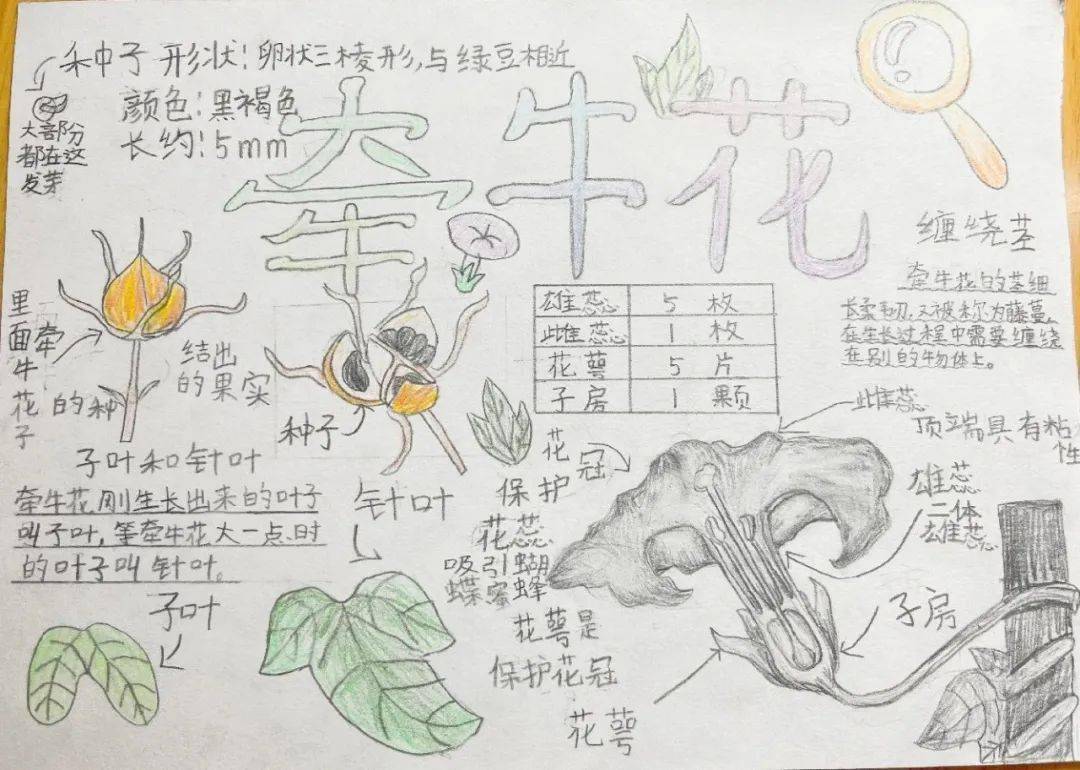 种子 形状:卵状三棱形,与绿豆相近
颜色:黑褐色
长约:5mm
大部分
都在这
发芽
牵牛花
里面牵牛花的种子
结出
的果实
种子
雄蕊 5 枚
雌蕊 1 枚
花萼 5 片
子房 1 颗
缠绕茎
牵牛花的茎细
长柔韧,又被称为藤蔓,
在生长过程中需要缠绕
在别的物体上。
子叶和针叶
牵牛花刚生长出来的叶子
叫子叶,等牵牛花大一点时
的叶子叫针叶。
子叶
针叶
花冠
保护
花蕊
吸引蝴
蝶蜜蜂
花萼是
保护花冠
花萼
雌蕊
顶端具有粘
性
雄蕊
二体
雄蕊
子房